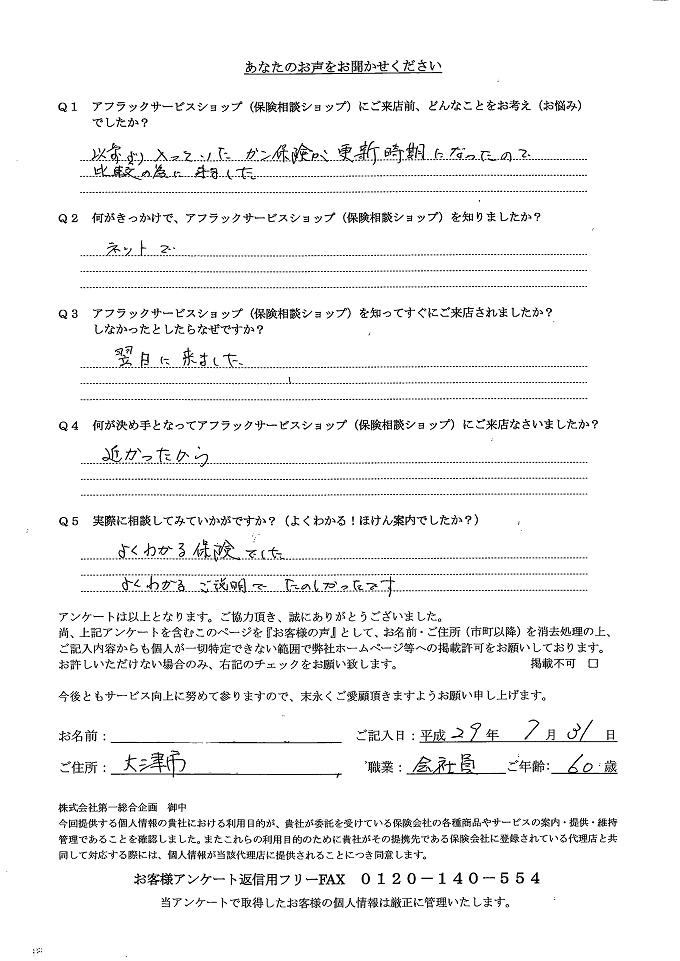 あなたのお声をお聞かせください
Q1 アフラックサービスショップ（保険相談ショップ）にご来店前、どんなことをお考え（お悩み）
でしたか？
以前より入っていたガン保険が更新時期になったので
比較の為に来ました
Q2 何がきっかけで、アフラックサービスショップ（保険相談ショップ）を知りましたか？
ネットで
Q3 アフラックサービスショップ（保険相談ショップ）を知ってすぐにご来店されましたか？
しなかったとしたらなぜですか？
翌日に来ました
Q4 何が決め手となってアフラックサービスショップ（保険相談ショップ）にご来店なさいましたか？
近かったから
Q5 実際に相談してみていかがですか？（よくわかる！ほけん案内でしたか？）
よくわかる保険でした
よくわかるご説明でたのしかったです
アンケートは以上となります。ご協力頂き、誠にありがとうございました。
尚、上記アンケートを含むこのページを『お客様の声』として、お名前・ご住所（市町以降）を消去処理の上、
ご記入内容からも個人が一切特定できない範囲で弊社ホームページ等への掲載許可をお願いしております。
お許しいただけない場合のみ、右記のチェックをお願い致します。 掲載不可 □
今後ともサービス向上に努めて参りますので、末永くご愛顧頂きますようお願い申し上げます。
お名前： ご記入日：平成 29 年 7 月 31 日
ご住所： 大津市 職業： 会社員 ご年齢： 60 歳
株式会社第一総合企画 御中
今回提供する個人情報の貴社における利用目的が、貴社が委託を受けている保険会社の各種商品やサービスの案内・提供・維持
管理であることを確認しました。またこれらの利用目的のために貴社がその提携先である保険会社に登録されている代理店と共
同して対応する際には、個人情報が当該代理店に提供されることにつき同意します。
お客様アンケート返信用フリーFAX 0120－140－554
当アンケートで取得したお客様の個人情報は厳正に管理いたします。